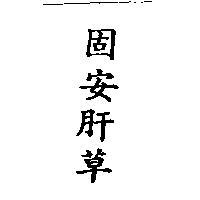 固安肝草